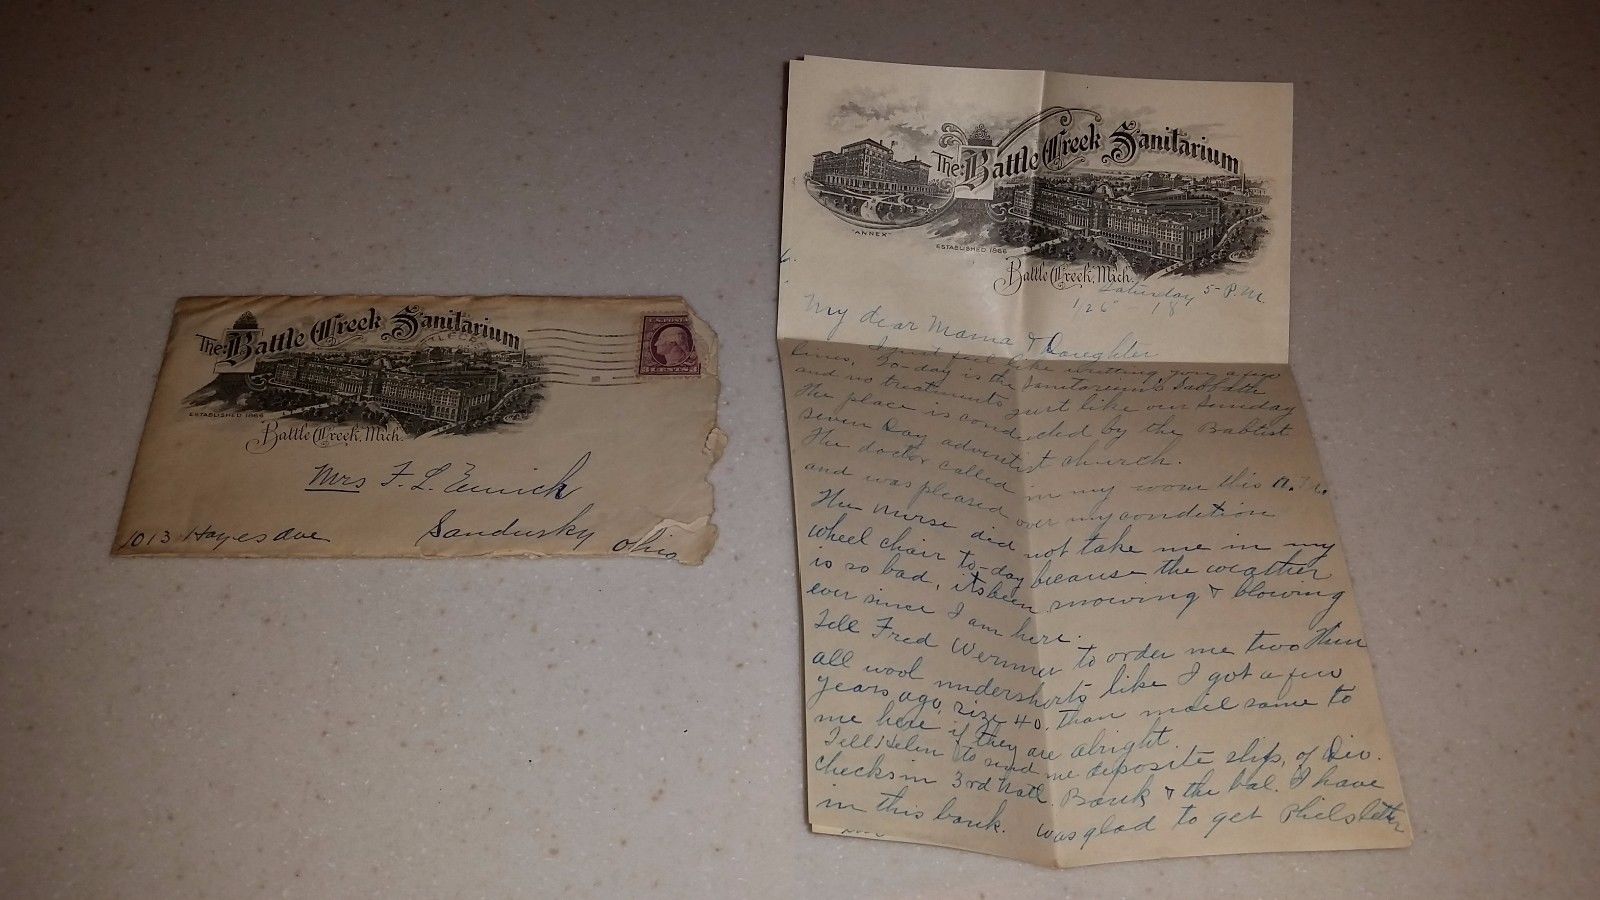 The Battle Creek Sanitarium
ESTABLISHED 1866
Battle Creek, Mich.
U.S. POSTAGE
3 CENTS 3
Mrs F. L. Emrich
1013 Hayes ave
Sandusky Ohio
The Battle Creek Sanitarium
"ANNEX"
ESTABLISHED 1866
Battle Creek, Mich.
Saturday 5- P.M.
1/26 18
My dear Mama & Daughter
I just feel like writting you a few
lines, To-day is the Sanitarium's Sabbath
and no treatments just like our Sunday
The place is conducted by the Babtist
seven Day adventist church.
The doctor called in my room this A.M.
and was pleased over my condition
The nurse did not take me in my
wheel chair to-day because the weather
is so bad, its been snowing & blowing
ever since I am here.
Tell Fred Wermer to order me two thin
all wool undershirts like I got a few
years ago, size 40, than mail same to
me here if they are alright.
Tell Helen to send me deposite slips, of Div.
checks in 3rd Natl. Bank & the bal. I have
in this bank. was glad to get Phils letter